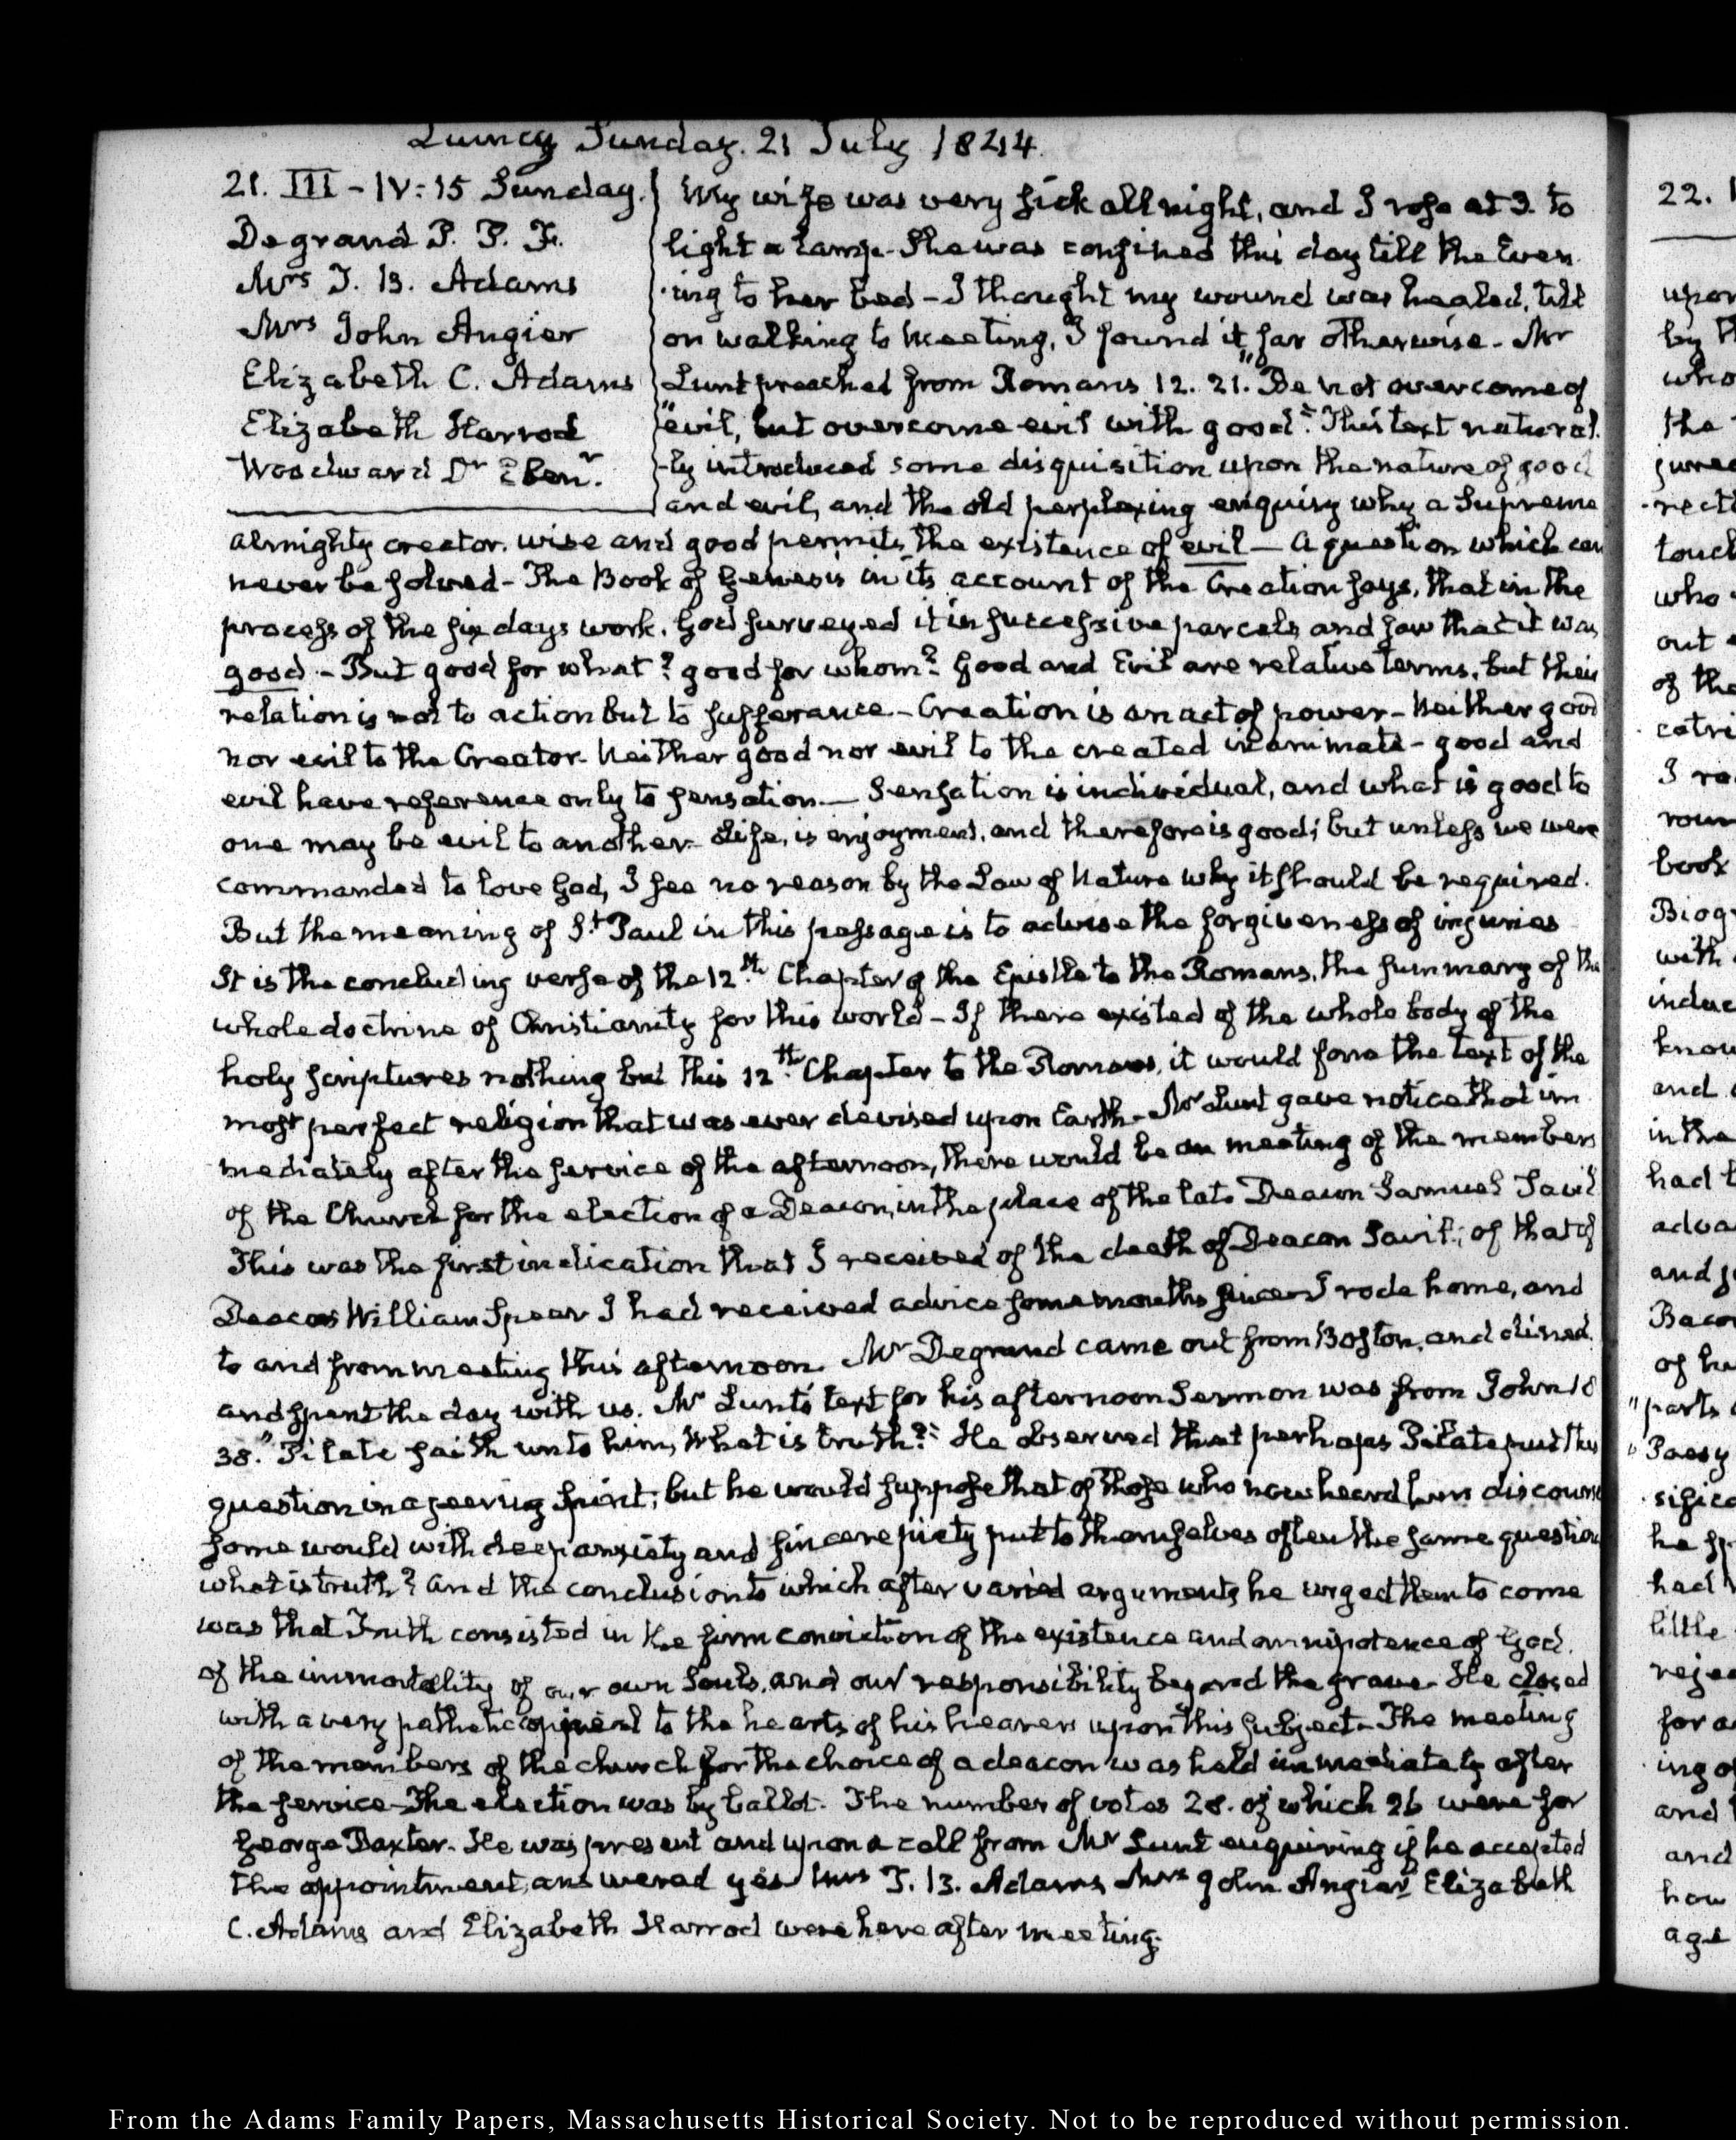 Quincy Sunday. 21 July 1844.
21. III - IV:15 Sunday.
Degrand P. P. F.
Mrs T. B. Adams
Mrs John Angier
Elizabeth C. Adams
Elizabeth Harrod
Woodward Dr Ebenr.
My wife was very sick all night, and I rose at 3. to
light a lamp. She was confined this day till the Even-
-ing to her bed - I thought my wound was healed, till
on walking to meeting, I found it far otherwise - Mr
Lunt preached from Romans 12. 21. "Be not overcome of
"evil, but overcome evil with good": This text natural-
-ly introduced some disquisition upon the nature of good
and evil, and the old perplexing enquiry why a Supreme
almighty creator, wise and good permits the existence of evil - A question which can
never be solved - The Book of Genesis in its account of the Creation says, that in the
process of the six days work, God surveyed it in successive parcels and saw that it was
good - But good for what? good for whom? Good and Evil are relative terms, but their
relation is not to action but to sufferance - Creation is an act of power - Neither good
nor evil to the Creator. Neither good nor evil to the created inanimate - good and
evil have reference only to sensation - Sensation is individual, and what is good to
one may be evil to another. Life, is enjoyment, and therefore is good; but unless we were
commanded to love God, I see no reason by the Law of Nature why it should be required.
But the meaning of St Paul in this passage is to advise the forgiveness of injuries
It is the concluding verse of the 12th Chapter of the Epistle to the Romans, the summary of the
whole doctrine of Christianity for this world - If there existed of the whole body of the
holy scriptures nothing but this 12th Chapter to the Romans, it would form the text of the
most perfect religion that was ever devised upon Earth - Mr Lunt gave notice that im
mediately after the service of the afternoon, there would be a meeting of the members
of the Church for the election of a Deacon, in the place of the late Deacon Samuel Savil
This was the first indication that I received of the death of Deacon Savil; of that of
Deacon William Spear I had received advice some months since I rode home, and
to and from meeting this afternoon. Mr Degrand came out from Boston, and dined
and spent the day with us. Mr Lunt's text for his afternoon Sermon was from John 18
38. "Pilate saith unto him, What is truth?" He observed that perhaps Pilate put this
question in a jeering spirit; but he would suppose that of those who now heard him discourse
some would with deep anxiety and sincere piety put to themselves often the same question
what is truth? and the conclusion to which after varied arguments he urged them to come
was that Truth consisted in the firm conviction of the existence and omnipotence of God.
of the immortality of our own Souls, and our responsibility beyond the grave. He closed
with a very pathetic appeal to the hearts of his hearers upon this subject. The meeting
of the members of the church for the choice of a deacon was held immediately after
the service - The election was by ballot. The number of votes 28. of which 26 were for
George Baxter. He was present and upon a call from Mr Lunt enquiring if he accepted
the appointment, answered yes Mrs T. B. Adams Mrs John Angier Elizabeth
C. Adams and Elizabeth Harrod were here after meeting.
22.
upon
by
who
the
touch
who
out
of the
I
book
Biog
with
induc
know
and
in the
had
adva
and
Baco
of
"parts
Poesy
he
had
little
reje
for
ing
and
and
how
age
From the Adams Family Papers, Massachusetts Historical Society. Not to be reproduced without permission.